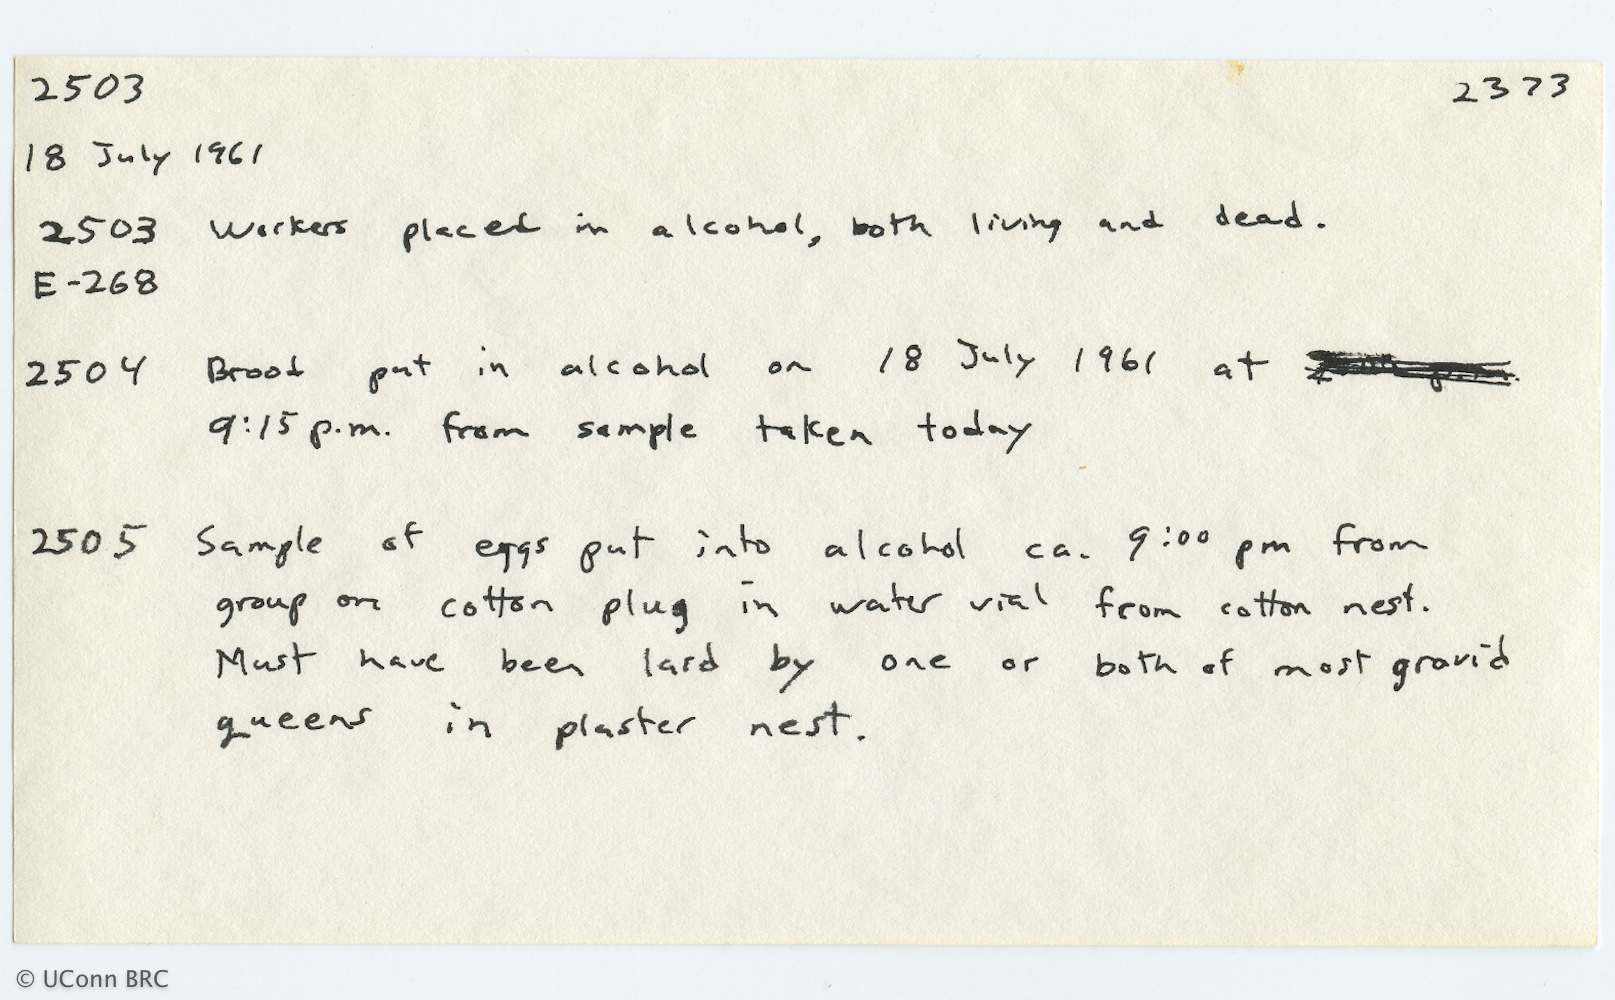 2503 2373
18 July 1961
2503 Workers placed in alcohol, both living and dead.
E-268
2504 Brood put in alcohol on 18 July 1961 at
9:15 p.m. from sample taken today
2505 Sample of eggs put into alcohol ca. 9:00 pm from
group on cotton plug in water vial from cotton nest.
Must have been laid by one or both of most gravid
queens in plaster nest.
© UConn BRC